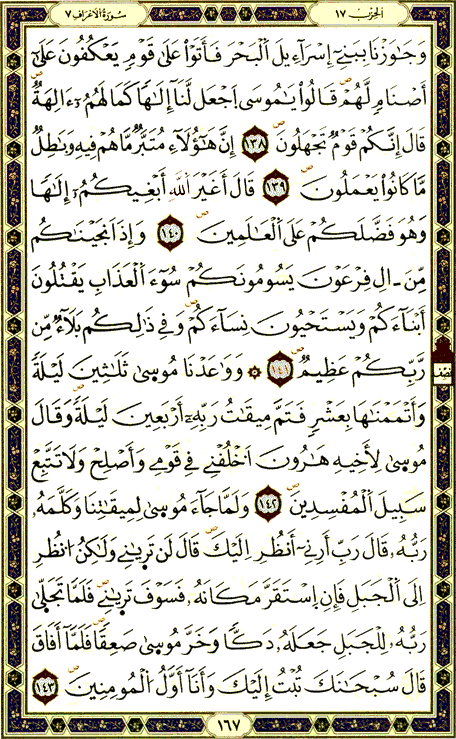 سُورَةُ الْأَعْرَافِ ٧
الْحِزْبُ ١٧
وَجَٰوَزْنَا بِبَنِےٓ إِسْرَآءِيلَ اَ۬لْبَحْرَ فَأَتَوْاْ عَلَىٰ قَوْمٖ يَعْكُفُونَ عَلَىٰٓ
أَصْنَامٖ لَّهُمْۖ قَالُواْ يَٰمُوسَى اَ۪جْعَل لَّنَآ إِلَٰهاٗ كَمَا لَهُمُۥٓ ءَالِهَةٞۖ
قَالَ إِنَّكُمْ قَوْمٞ تَجْهَلُونَۖ ١٣٨ إِنَّ هَٰٓؤُلَآءِ مُتَبَّرٞ مَّا هُمْ فِيهِ وَبَٰطِلٞ
مَّا كَانُواْ يَعْمَلُونَۖ ١٣٩ قَالَ أَغَيْرَ اَ۬للَّهِ أَبْغِيكُمُۥٓ إِلَٰهاٗ
وَهُوَ فَضَّلَكُمْ عَلَى اَ۬لْعَٰلَمِينَۖ ١٤٠ وَإِذَ اَنجَيْنَٰكُم
مِّنَ اٰلِ فِرْعَوْنَ يَسُومُونَكُمْ سُوٓءَ اَ۬لْعَذَابِ يَقْتُلُونَ
أَبْنَآءَكُمْ وَيَسْتَحْيُونَ نِسَآءَكُمْۖ وَفِے ذَٰلِكُم بَلَآءٞ مِّن
رَّبِّكُمْ عَظِيمٞۖ ١٤١ ۞ وَوَٰعَدْنَا مُوسَىٰ ثَلَٰثِينَ لَيْلَةٗ
وَأَتْمَمْنَٰهَا بِعَشْرٖ فَتَمَّ مِيقَٰتُ رَبِّهِۦٓ أَرْبَعِينَ لَيْلَةٗۖ وَقَالَ
مُوسَىٰ لِأَخِيهِ هَٰرُونَ اَ۟خْلُفْنِے فِے قَوْمِے وَأَصْلِحْ وَلَا تَتَّبِعْ
سَبِيلَ اَ۬لْمُفْسِدِينَۖ ١٤٢ وَلَمَّا جَآءَ مُوسَىٰ لِمِيقَٰتِنَا وَكَلَّمَهُۥ
رَبُّهُۥ قَالَ رَبِّ أَرِنِےٓ أَنظُرِ اِلَيْكَۖ قَالَ لَن تَر۪يٰنِے وَلَٰكِنُ اُ۟نظُرِ
اِلَى اَ۬لْجَبَلِ فَإِنِ اِ۪سْتَقَرَّ مَكَانَهُۥ فَسَوْفَ تَر۪يٰنِےۖ فَلَمَّا تَجَلَّىٰ
رَبُّهُۥ لِلْجَبَلِ جَعَلَهُۥ دَكّاٗ وَخَرَّ مُوسَىٰ صَعِقاٗۖ فَلَمَّآ أَفَاقَ
قَالَ سُبْحَٰنَكَ تُبْتُ إِلَيْكَ وَأَنَآ أَوَّلُ اُ۬لْمُومِنِينَۖ ١٤٣
نصف
١٦٧